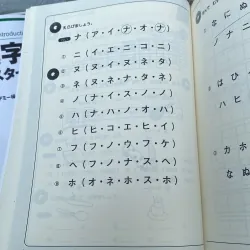 えらびましょう。
ナ(ア・イ・ナ・オ・ナ)
① ニ(イ・エ・ニ・コ・ニ)
② ヌ(ヌ・イ・ヌ・ネ・タ)
③ ネ(ヌ・ネ・ナ・タ・ネ)
④ ノ(ナ・イ・ス・ノ・ノ)
⑤ ハ(ナ・ハ・ノ・オ・ハ)
⑥ ヒ(ヒ・コ・エ・ヒ・イ)
⑦ フ(フ・ノ・ウ・フ・ケ)
⑧ ヘ(フ・ノ・ナ・ス・ヘ)
⑨ ホ(オ・ネ・ホ・ス・ホ)
なにぬ
ノナ
はひ
ハ
なぬ
字
スタ